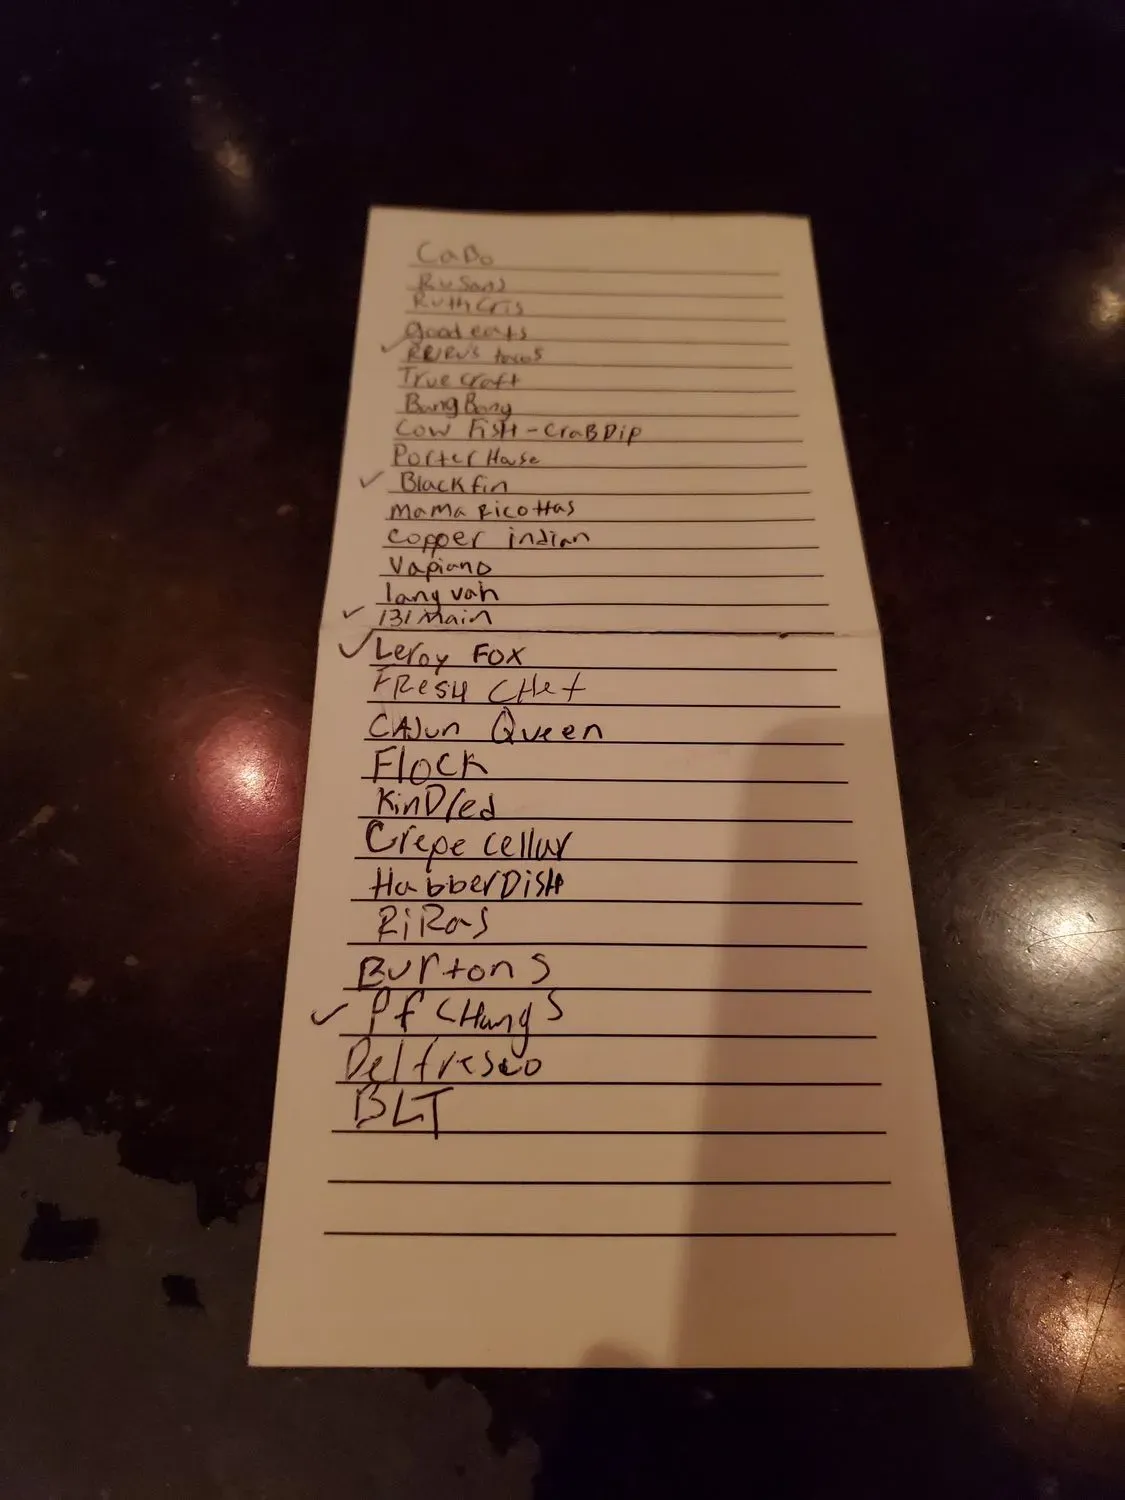 CaBo
RuSans
Ruth Cris
good eats
✓ tacos
True craft
Bang Bang
Cow Fish - CraB Dip
Porter House
✓ Blackfin
Mama Ricottas
Copper indian
Vapiano
lang van
✓ 131 Main
✓ Leroy Fox
FResH CHef
CAJun Queen
Flock
KinDred
Crepe cellar
HabberDisH
RiRas
Burtons
✓ Pf CHangs
Delfresco
BLT